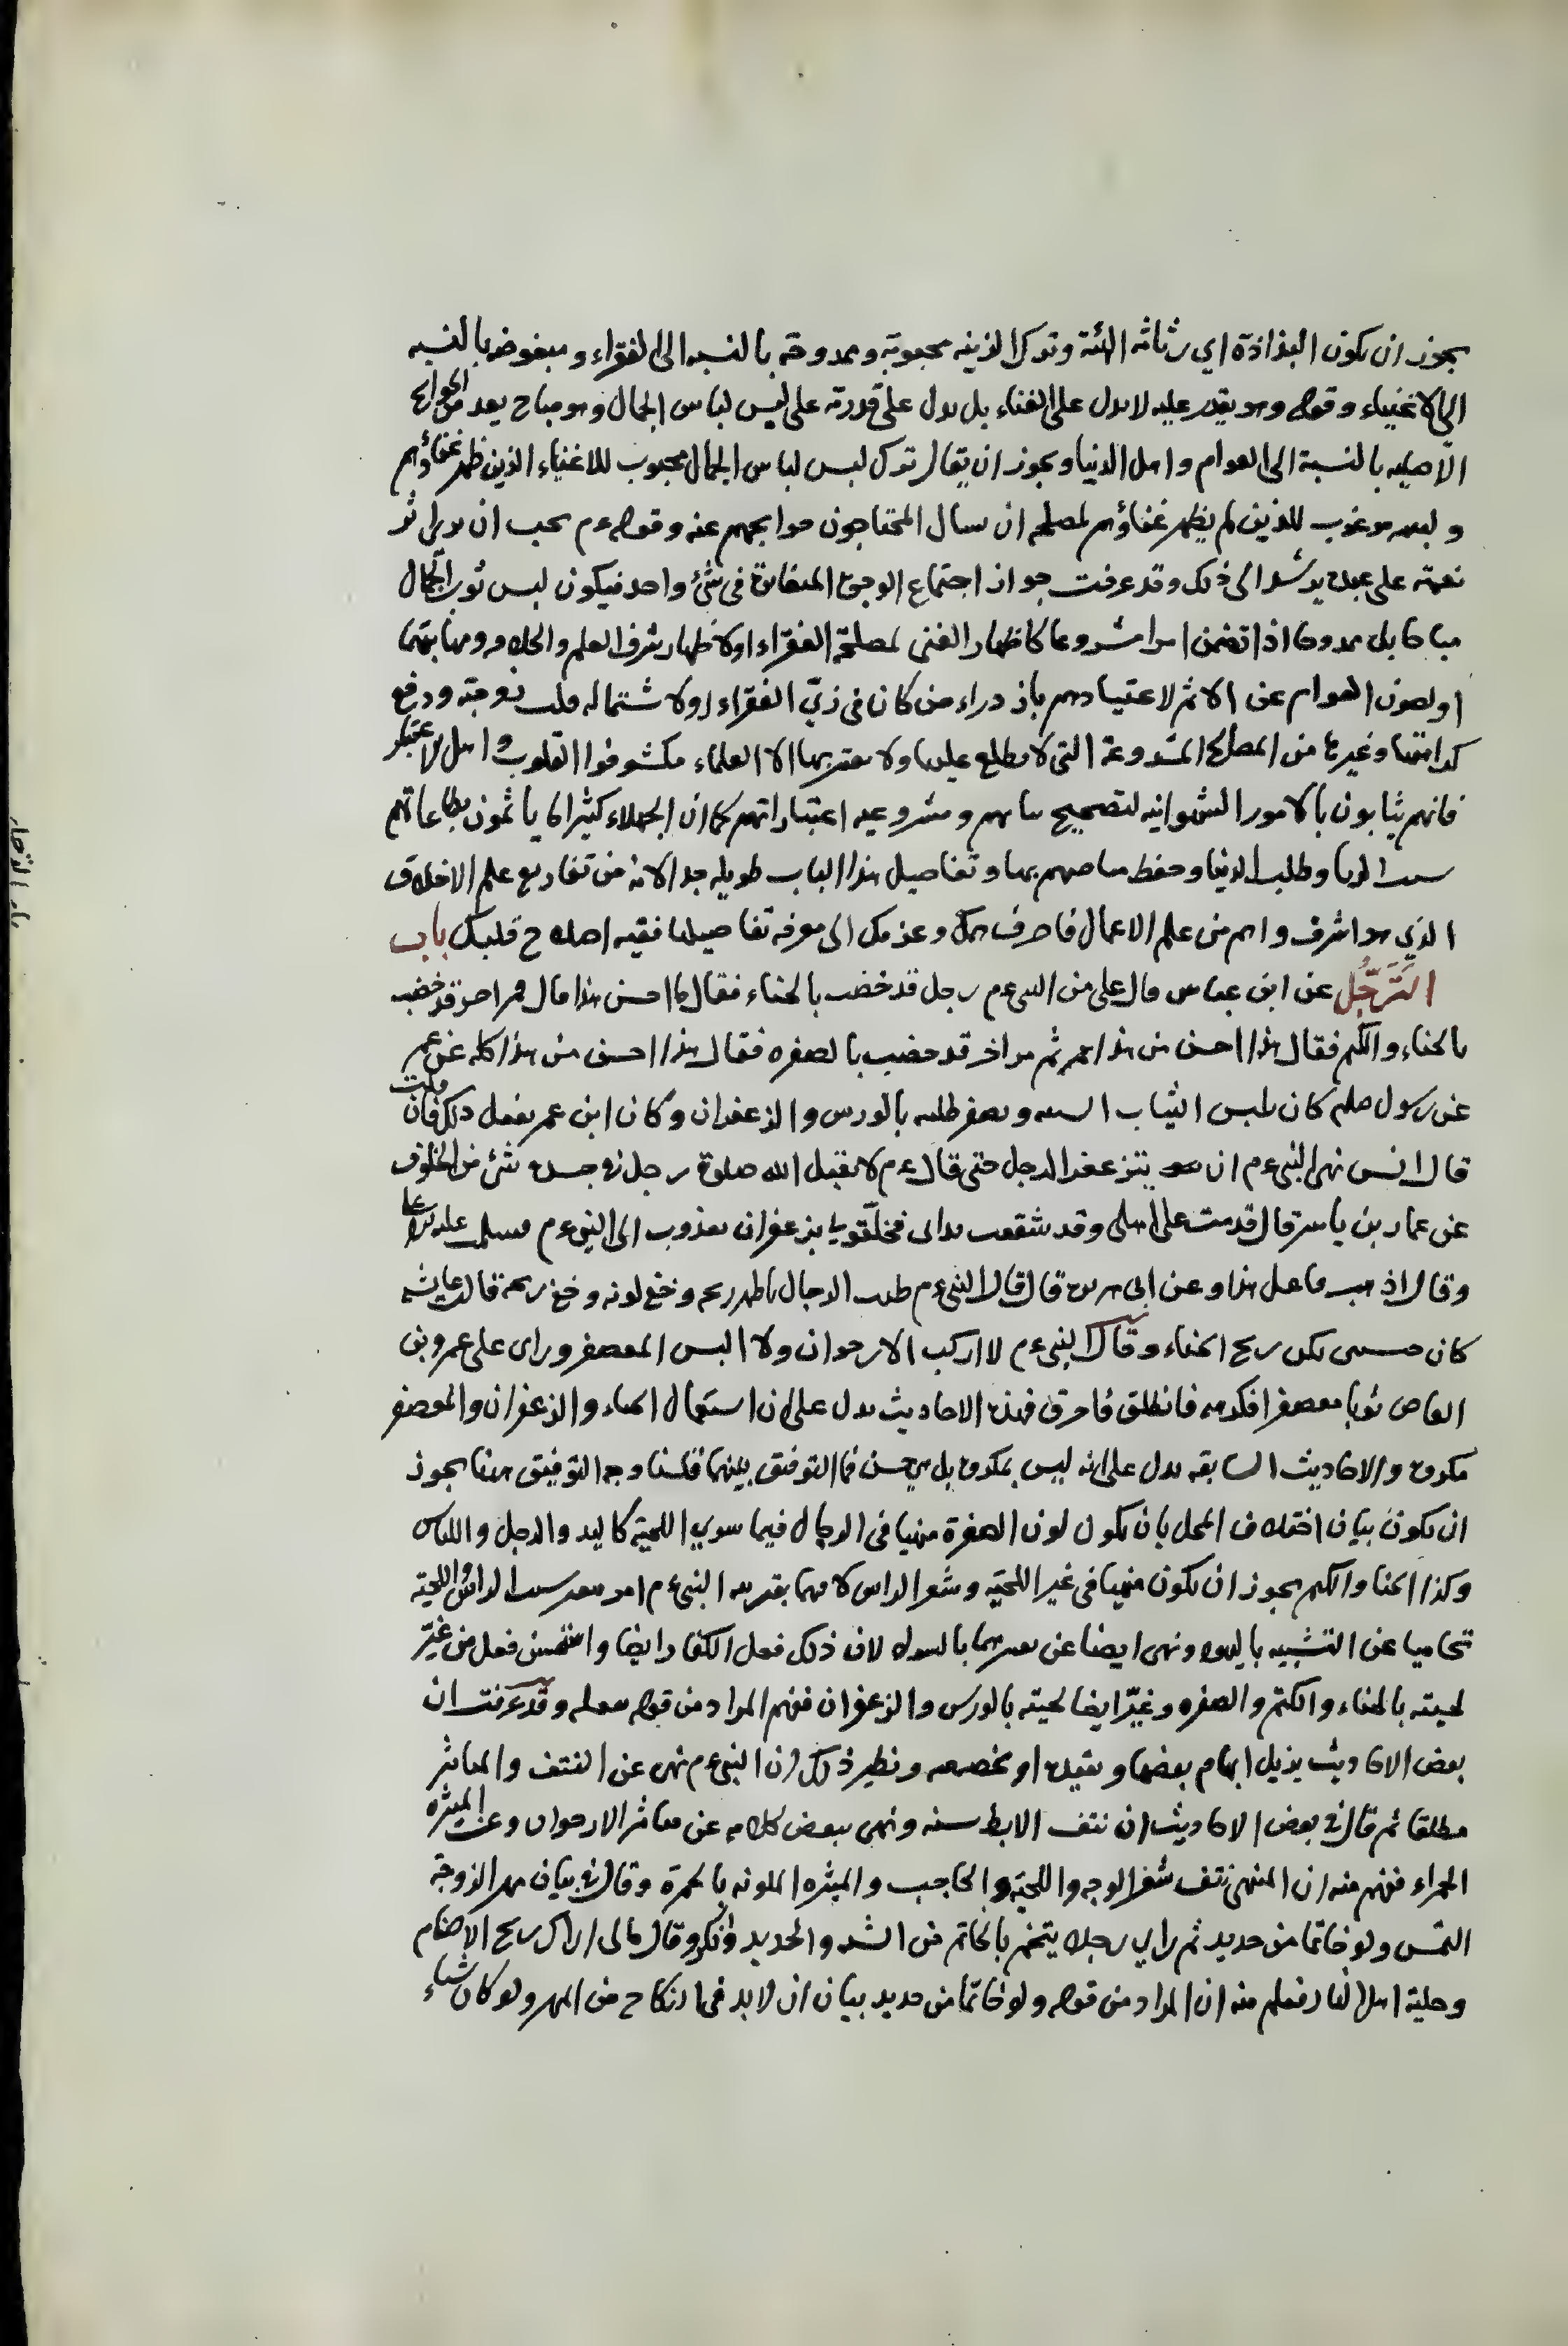 يجوز ان يكون البذاذة اي رثاثة الهئة وترك الزينه محبوبة وممدوحة بالنسبه الى الفقراء ومبغوضه بالنسبه
الى الاغنياء وقوله وهو يقدر عليه لا يدل على الغناء بل يدل على قدرته على لبس لباس الجمال وهو مباح يعد من الحوايج
الاصليه بالنسبة الى العوام واهل الدنيا ويجوز ان يقال ترك لبس لباس الجمال محبوب للاغنياء الذين ظهر غناؤهم
ولبسه مرغوب للذين لم يظهر غناؤهم لمصلحه ان يسال المحتاجون حوايجهم عنه وقوله عم يحب ان يرى اثر
نعمته على عبده يرشد الى ذلك وقد عرفت جواز اجتماع الوجوه المتفاوتة في شئ واحد فيكون لبس ثوب الجمال
مباحا بل ممدوحا اذا تضمن امرا مشروعا كاظهار الغنى لمصلحة الفقراء او لاظهار شرف العلم والحلم ومهابتهما
او لصون العوام عن الاثم لاعتيادهم بازدراء من كان في زيّ الفقراء او لاشتماله قلب زوجته ودفع
كراهتها وغيرها من المصالح المشروعة التي لا يطلع عليها ولا يعتبرها الا العلماء مكشوفوا القلوب واهل الاعتبار
فانهم يثابون بالامور الشهوانيه لتصحيح نياتهم ومشروعيه اعتباراتهم كما ان الجهلاء كثيرا ما ياثمون بطاعاتهم
بسبب الريا وطلب الدنيا وحفظ مناصبهم بها وتفاصيل هذا الباب طويله جدا لانه من تفاريع علم الاخلاق
الذي هو اشرف واهم من علم الاعمال فاصرف همك وعزمك الى معرفة تفاصيلها ففيه اصلاح قلبك باب
التَرَجُّل عن ابن عباس قال مر على النبي عم رجل قد خضب بالحناء فقال ما احسن هذا قال فمر اخر قد خضب
بالحناء والكتم فقال هذا احسن من هذا ثم مر اخر قد خضب بالصفره فقال هذا احسن من هذا كله عن عمر
عن رسول صلم كان يلبس الثياب السبتيه ويصفر لحيته بالورس والزعفران وكان ابن عمر يفعل ذلك فان قلت
قال انس نهى النبي عم ان يتزعفر الرجل حتى قال عم لا يقبل الله صلوة رجل في جسده شئ من الخلوق
عن عمار بن ياسر قال قدمت على اهلى وقد شققت يداى فخلّقوني بزعفران فغدوت الى النبي عم فسلمت عليه فلم يرد على
وقال اذهب فاغسل هذا وعن ابى هريرة قال قال النبي عم طيب الرجال ما ظهر ريحه وخفى لونه وخفى ريحه قالت عايشه
كان حبيبى يكره ريح الحناء وقال النبي عم لا اركب الارجوان ولا البس المعصفر وراى على عمرو بن
العاص ثوبا معصفرا فكرهه فانطلق فاحرقه فهذه الاحاديث يدل على ان استعمال الحناء والزعفران والمعصفر
مكروه والاحاديث السابقه يدل على انه ليس بمكروه بل هو حسن فما التوفيق بينهما قلنا وجه التوفيق ههنا يجوز
ان يكون بيان اختلاف المحل بان يكون لون الصفرة منهيا في الرجال فيما سوى اللحية كاليد والرجل واللباس
وكذا الحنا والكتم يجوز ان يكون منهيا في غير اللحية وشعر الراس لانهما بقدر به النبي عم امر بتغيير شيب الراس واللحية
تحاميا عن التشبيه باليهود ونهى ايضا عن تغييرهما بالسواد لان ذلك فعل الكفار ايضا واستحسن فعل من غيّر
لحيته بالحناء والكتم والصفره وغيّر ايضا لحيته بالورس والزعفران ففهم المراد من قوله بفعله وقد عرفت ان
بعض الاحاديث يزيل ابهام بعضها ويقيده او يخصصه ونظير ذلك ان النبي عم نهى عن النتف والمياثر
مطلقا ثم قال في بعض الاحاديث ان نتف الابط سنه ونهى ببعض كلامه عن مياثر الارجوان وعن الميثره
الحمراء ففهم منه ان المنهى نتف شعر الوجه واللحية والحاجب والميثره الملونه بالحمرة وقال في بيان مهر الزوجة
التمس ولو خاتما من حديد ثم راى رجلا يتختم بالخاتم من الشبه والحديد وانكره وقال مالى اراك ريح الاصنام
وحلية اهل النار فعلم منه ان المراد من قوله ولو خاتما من حديد بيان ان لا بد في النكاح من المهر ولو كان شياء